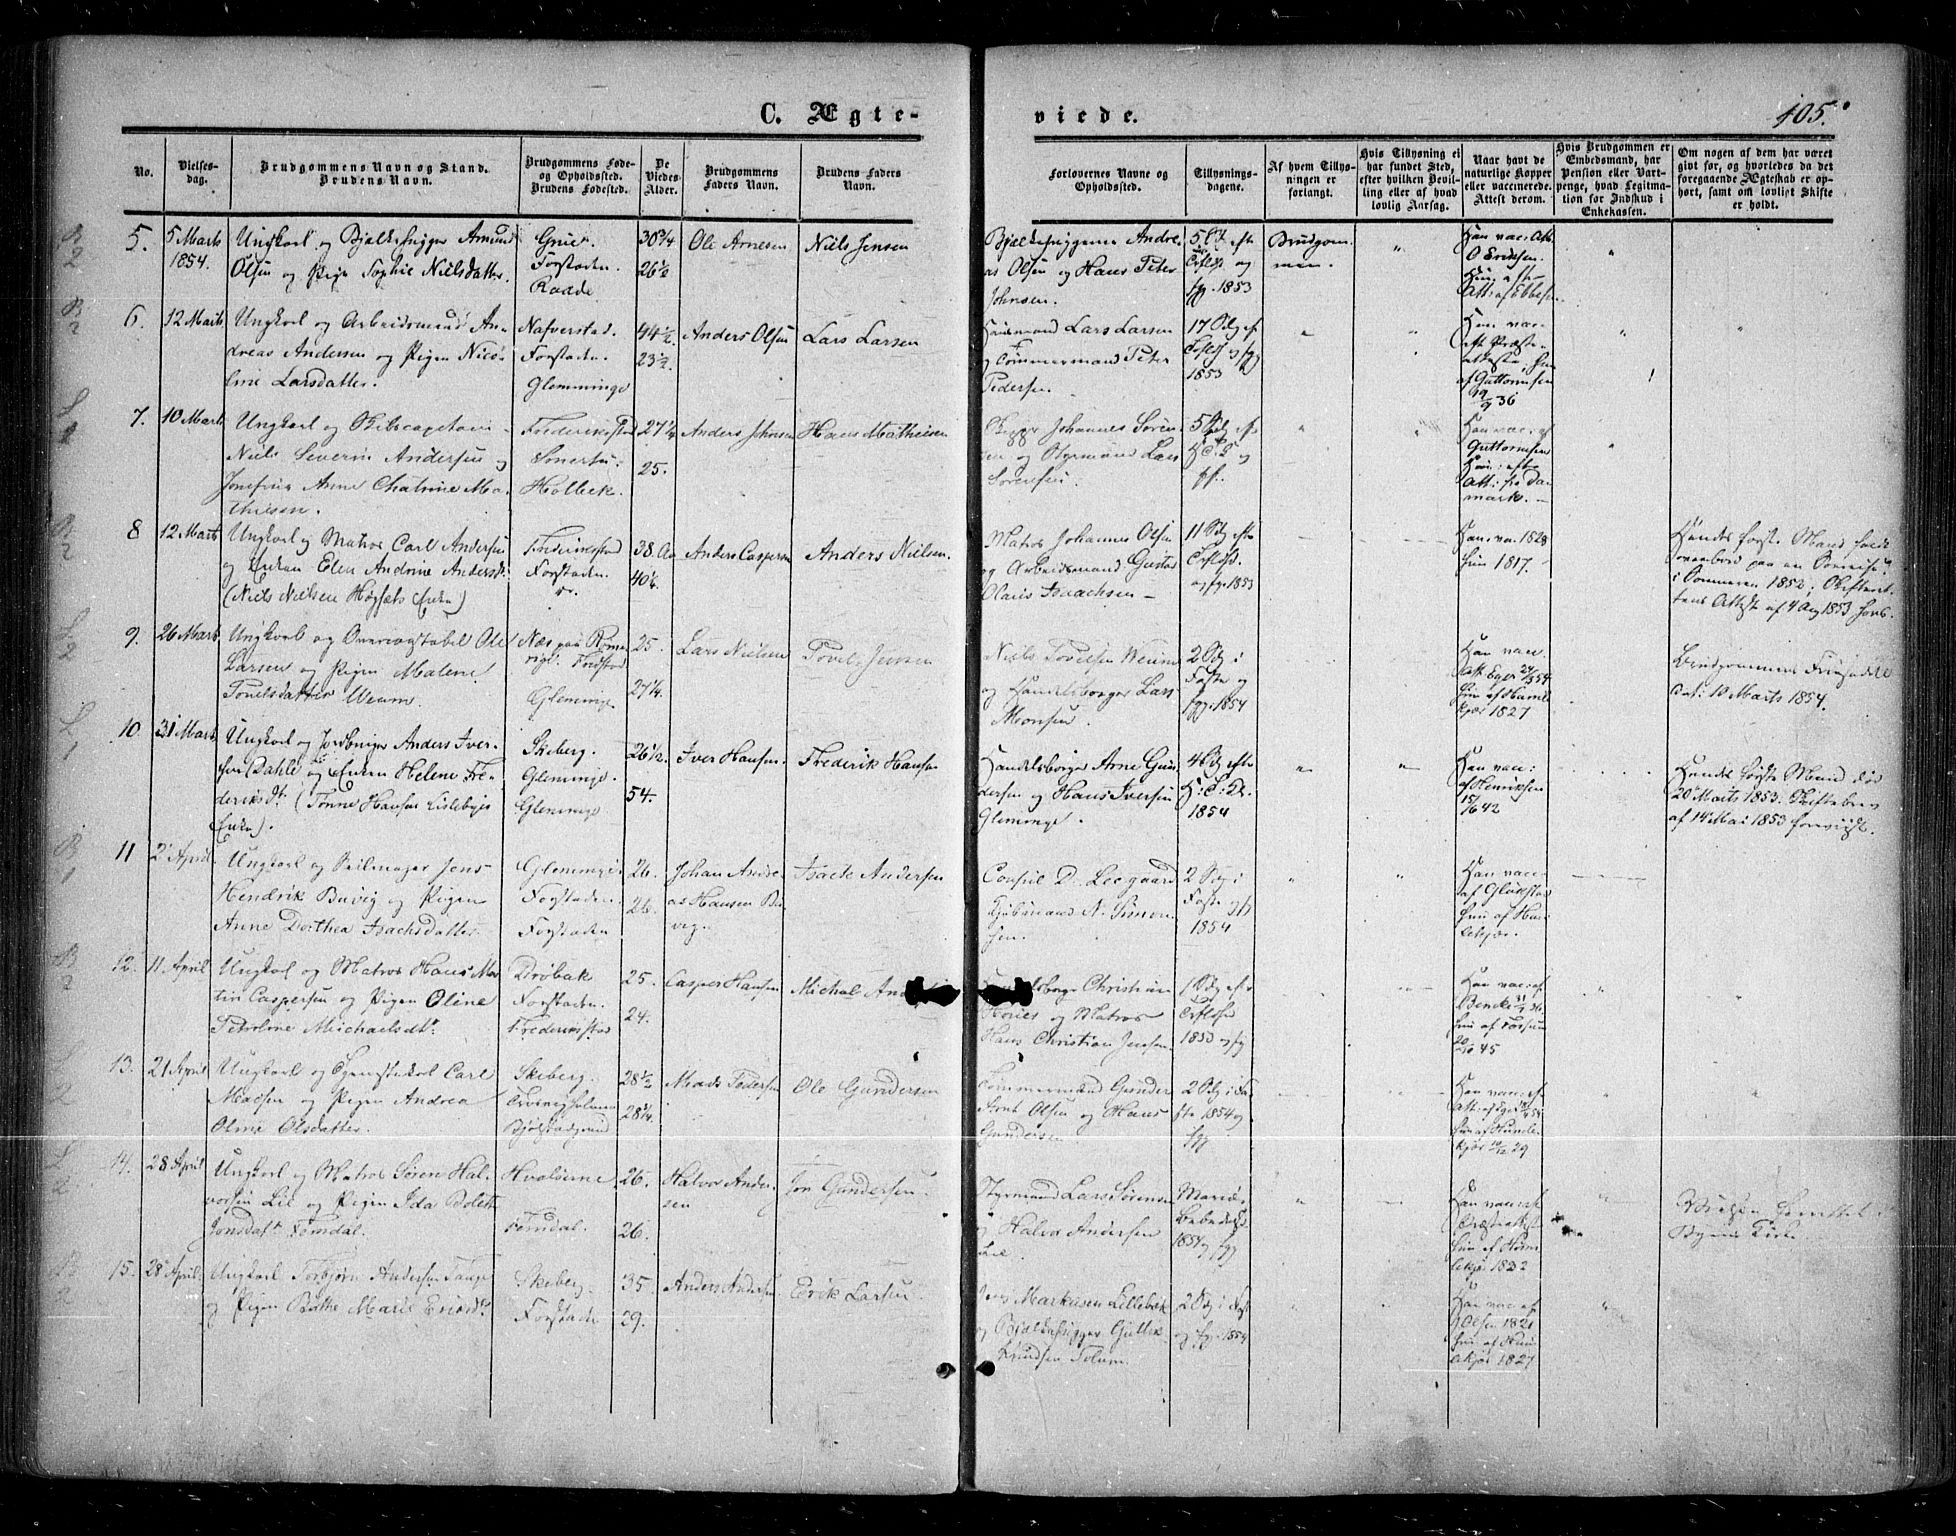 C. Ægte-
viede.
105.
No.
Vielses-
dag.
Brudgommens Navn og Stand.
Brudens Navn.
Brudgommens Føde-
og Opholdssted.
Brudens Fødested.
De
Viedes
Alder.
Brudgommens
Faders Navn.
Brudens Faders
Navn.
Forlovernes Navne og
Opholdssted.
Tillysnings-
dagene.
Af hvem Tillys-
ningen er
forlangt.
Hvis Tillysning ei
har fundet Sted,
efter hvilken Bevil-
ling eller af hvad
lovlig Aarsag.
Naar havt de
naturlige Kopper
eller vaccinerede.
Attest derom.
Hvis Brudgommen er
Embedsmand, har
Pension eller Vart-
penge, hvad Legitma-
tion for Indskud i
Enkekassen.
Om nogen af dem har været
gift før, og hvorledes da det
foregaaende Ægteskab er op-
hørt, samt om lovligt Skifte
er holdt.
5.
5 Marts
1854.
Ungkarl og Bjelkehugger Amund
Olsen og Pige Sophie Nielsdatter.
Grue.
Forstaden.
Raade
30 3/4
26 1/2
Ole Arnesen
Niels Jensen
Bjelkehuggerne Andre-
as Olsen og Hans Peter
Johnsen.
og
1853
Brudgom-
men.
Han vac: Att.
O Eriksen.
Hun efter
Att: af Ebbesen
6.
12 Marts
Ungkarl og Arbeidsmand An-
dreas Andersen og Pigen Nico-
line Larsdatter.
Nafverstad.
Forstaden.
Glemminge
44 1/2
23 1/2.
Anders Olsen
Lars Larsen
Huusmand Lars Larsen
og Tømmermand Peter
Pedersen.
17 Sdg ef
1853
Han vac.
eft Præste-
attest, hun
af Guttormsen
36
7.
10 Marts
Ungkarl og Skibscapetain
Niels Severin Andersen og
Jomfru Anne Chatrine Ma-
thiesen.
Frederiksstad
Holbek.
27 1/4
25.
Anders Johnsen
Hans Mathiesen
Skipper Johannes Sören-
sen og Styrmand Lars
Sörensen.
5 Sdg eft
og
ff.
Han vac: af
Guttormsen
Hun: efter
Att: fra Dan-
mark.
8
12 Marts
Ungkarl og Matros Carl Andersen
og Enken Elen Andrine Andersdt
(Niels Nielsen Høgsæts Enke)
Frederiksstad
Forstaden.
38. Aar
40 1/2.
Anders Caspersen
Anders Nielsen.
Matros Johannes Olsen
og Arbeidsmand Gustav
Olaus Isachsen
11 Sdg efter
og fg. 1853
Han va. 1828
hun 1817.
Hendes første Mand faldt
overbord paa en Søreise
i Sommeren 1852; Skifteret-
tens Attest af 4 Aug 1853
9.
26 Marts
Ungkarl og Overconstabel Ole
Larsen og Pigen Malene
Tovelsdatter Weum.
Næs paa Rome-
rige. Fredstad
Glemminge
25.
27 1/4.
Lars Nielsen
Tovel Jensen
Niels Tovelsen Weum
og Handelsborger Lars
Monsen.
2 Sdg i
Faste og
fgg. 1854
Han vac.
att. Eger
54
hun af Humle-
kjær 1827
Brudgommens Friseddel
Dat: 10 Marts 1854.
10.
31 Marts
Ungkarl og Jordbruger Anders Iver-
sen Dahle og Enken Helene Fre-
deriksdt. (Tønne Hansen Lislebyes
Enke).
Skeberg.
Glemminge.
Glemminge
26 1/2.
54.
Iver Hansen.
Frederik Hansen
Handelsborger Arne Gun-
dersen og Hans Iversen
Glemminge.
4 Sdg efter
1854
Han vac:
af Henriksen
15/6 42
Hendes første Mand død
20 Marts 1853. Skiftebrev
af 14 Mai 1853 foreviist.
11
2 April.
Ungkarl og Seilmager Jens
Hendrik Buvig og Pigen
Anne Dorthea Isachsdatter
Glemminge
Forstaden.
Forstaden
26.
26.
Johan Andre-
as Hansen Bu-
vig.
Isack Andersen
Consul D. Leegaard
Kjøbmand N. Simon-
sen.
2 Sdg i
Faste
1854
Han vac.
af Glückstad
hun af Hum-
lekjær.
12.
11 April
Ungkarl og Matros Hans Mar-
tin Caspersen og Pigen Oline
Petroline Michaelsdtr.
Drøbak
Forstaden.
Frederiksstad
25.
24.
Casper Hansen
Michal
Handelsborger Christian
og Matros
Hans Christian Jensen
1 Sdg efter
1853 og fg
Han vac: af
Bencke
hun af
45
13.
21 April
Ungkarl og Carl
Madsen og Pigen Andrea
Oline Olsdatter.
Skeberg.
28 1/2
28 1/4.
Mads Pedersen
Ole Gundersen
Tømmermand Gunder
Olsen og Hans
Gundersen.
2 Sdg i Fa-
ste 1854 og
fgg
Han vac: ef.
Att: af Eger
54
hun af Humle-
kjær 29
14.
28 April
Ungkarl og Matros Søren Hal-
vorsen Lil og Pigen Ida Bolette
Jonsdatt Femdal.
Hvaløerne
Femdal.
26.
26.
Halvor Ander-
sen
Jon Gundersen.
Styrmand Lars Sörensen
og Halvor Andersen
Lil.
Mariæ
Bebudelse
1854 og fgg
Han vac: ef
Præsteattest
hun af Hum-
lekjær 1832
Vielsen forrettet i
Byens Kirke
15.
28 April.
Ungkarl Torbjørn Andersen
og Pigen Bathe Marie Ericsdtr
Skeberg
Forstade
35
29.
Anders Andersen
Erik Larsen
Markusen Lillebæk
og Bjelkehugger Gullik
Knudsen
2 Sdg i Fast
og fg. 1854
Han vac: af
Olsen 1821
hun af Hum-
lekjær 1827